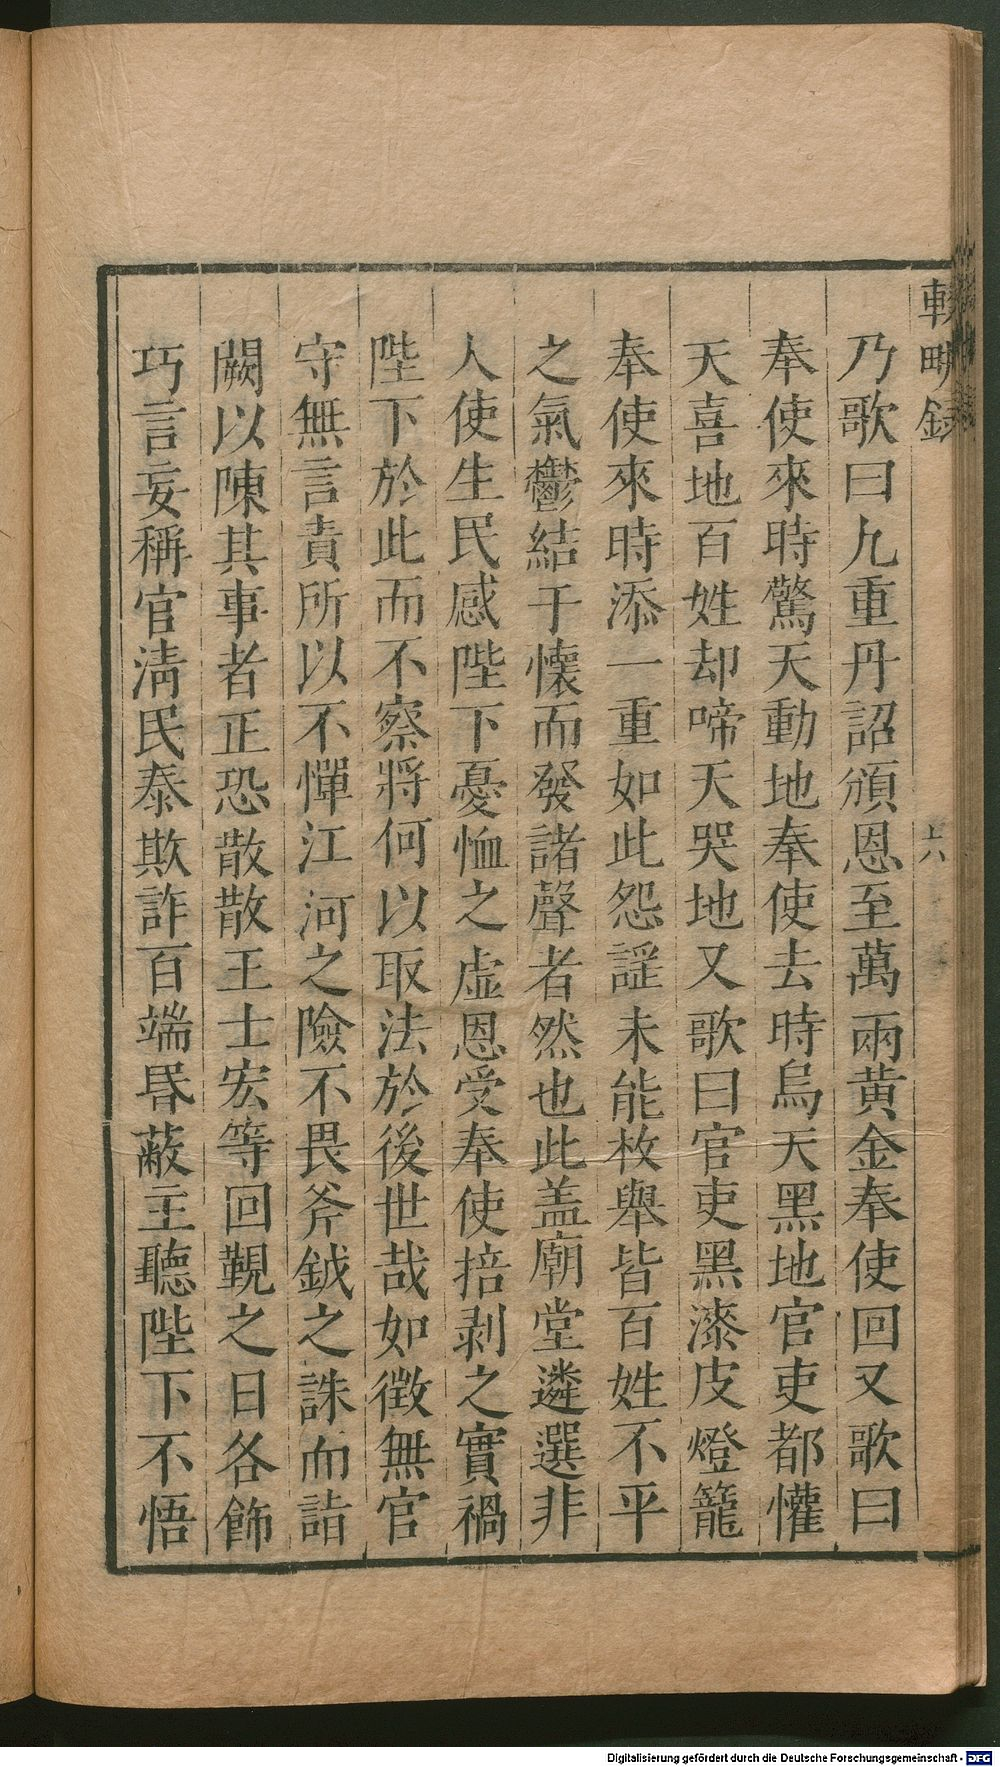 輟畊錄
上六
乃歌曰九重丹詔頒恩至萬兩黃金奉使回又歌曰
奉使來時驚天動地奉使去時烏天黑地官吏都懽
天喜地百姓却啼天哭地又歌曰官吏黑漆皮燈籠
奉使來時添一重如此怨謡未能枚舉皆百姓不平
之氣鬱結于懷而發諸聲者然也此盖廟堂遴選非
人使生民感陛下憂恤之虛恩受奉使掊剥之實禍
陛下於此而不察將何以取法於後世哉如徵無官
守無言責所以不憚江河之險不畏斧鉞之誅而詣
闕以陳其事者正恐散散王士宏等回覲之日各飾
巧言妄稱官淸民泰欺詐百端昬蔽主聽陛下不悟
Digitalisierung gefördert durch die Deutsche Forschungsgemeinschaft - DFG